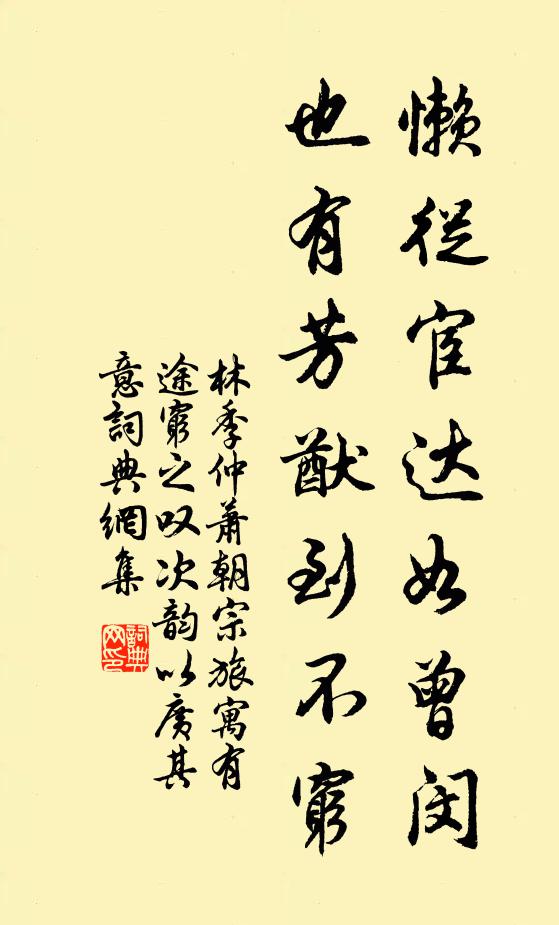 懒從宦达如曾闵
也有芳猷到不窮
林季仲蕭朝宗旅寓有
途窮之叹次韵以廣其
意詞典網集
詞典
网印